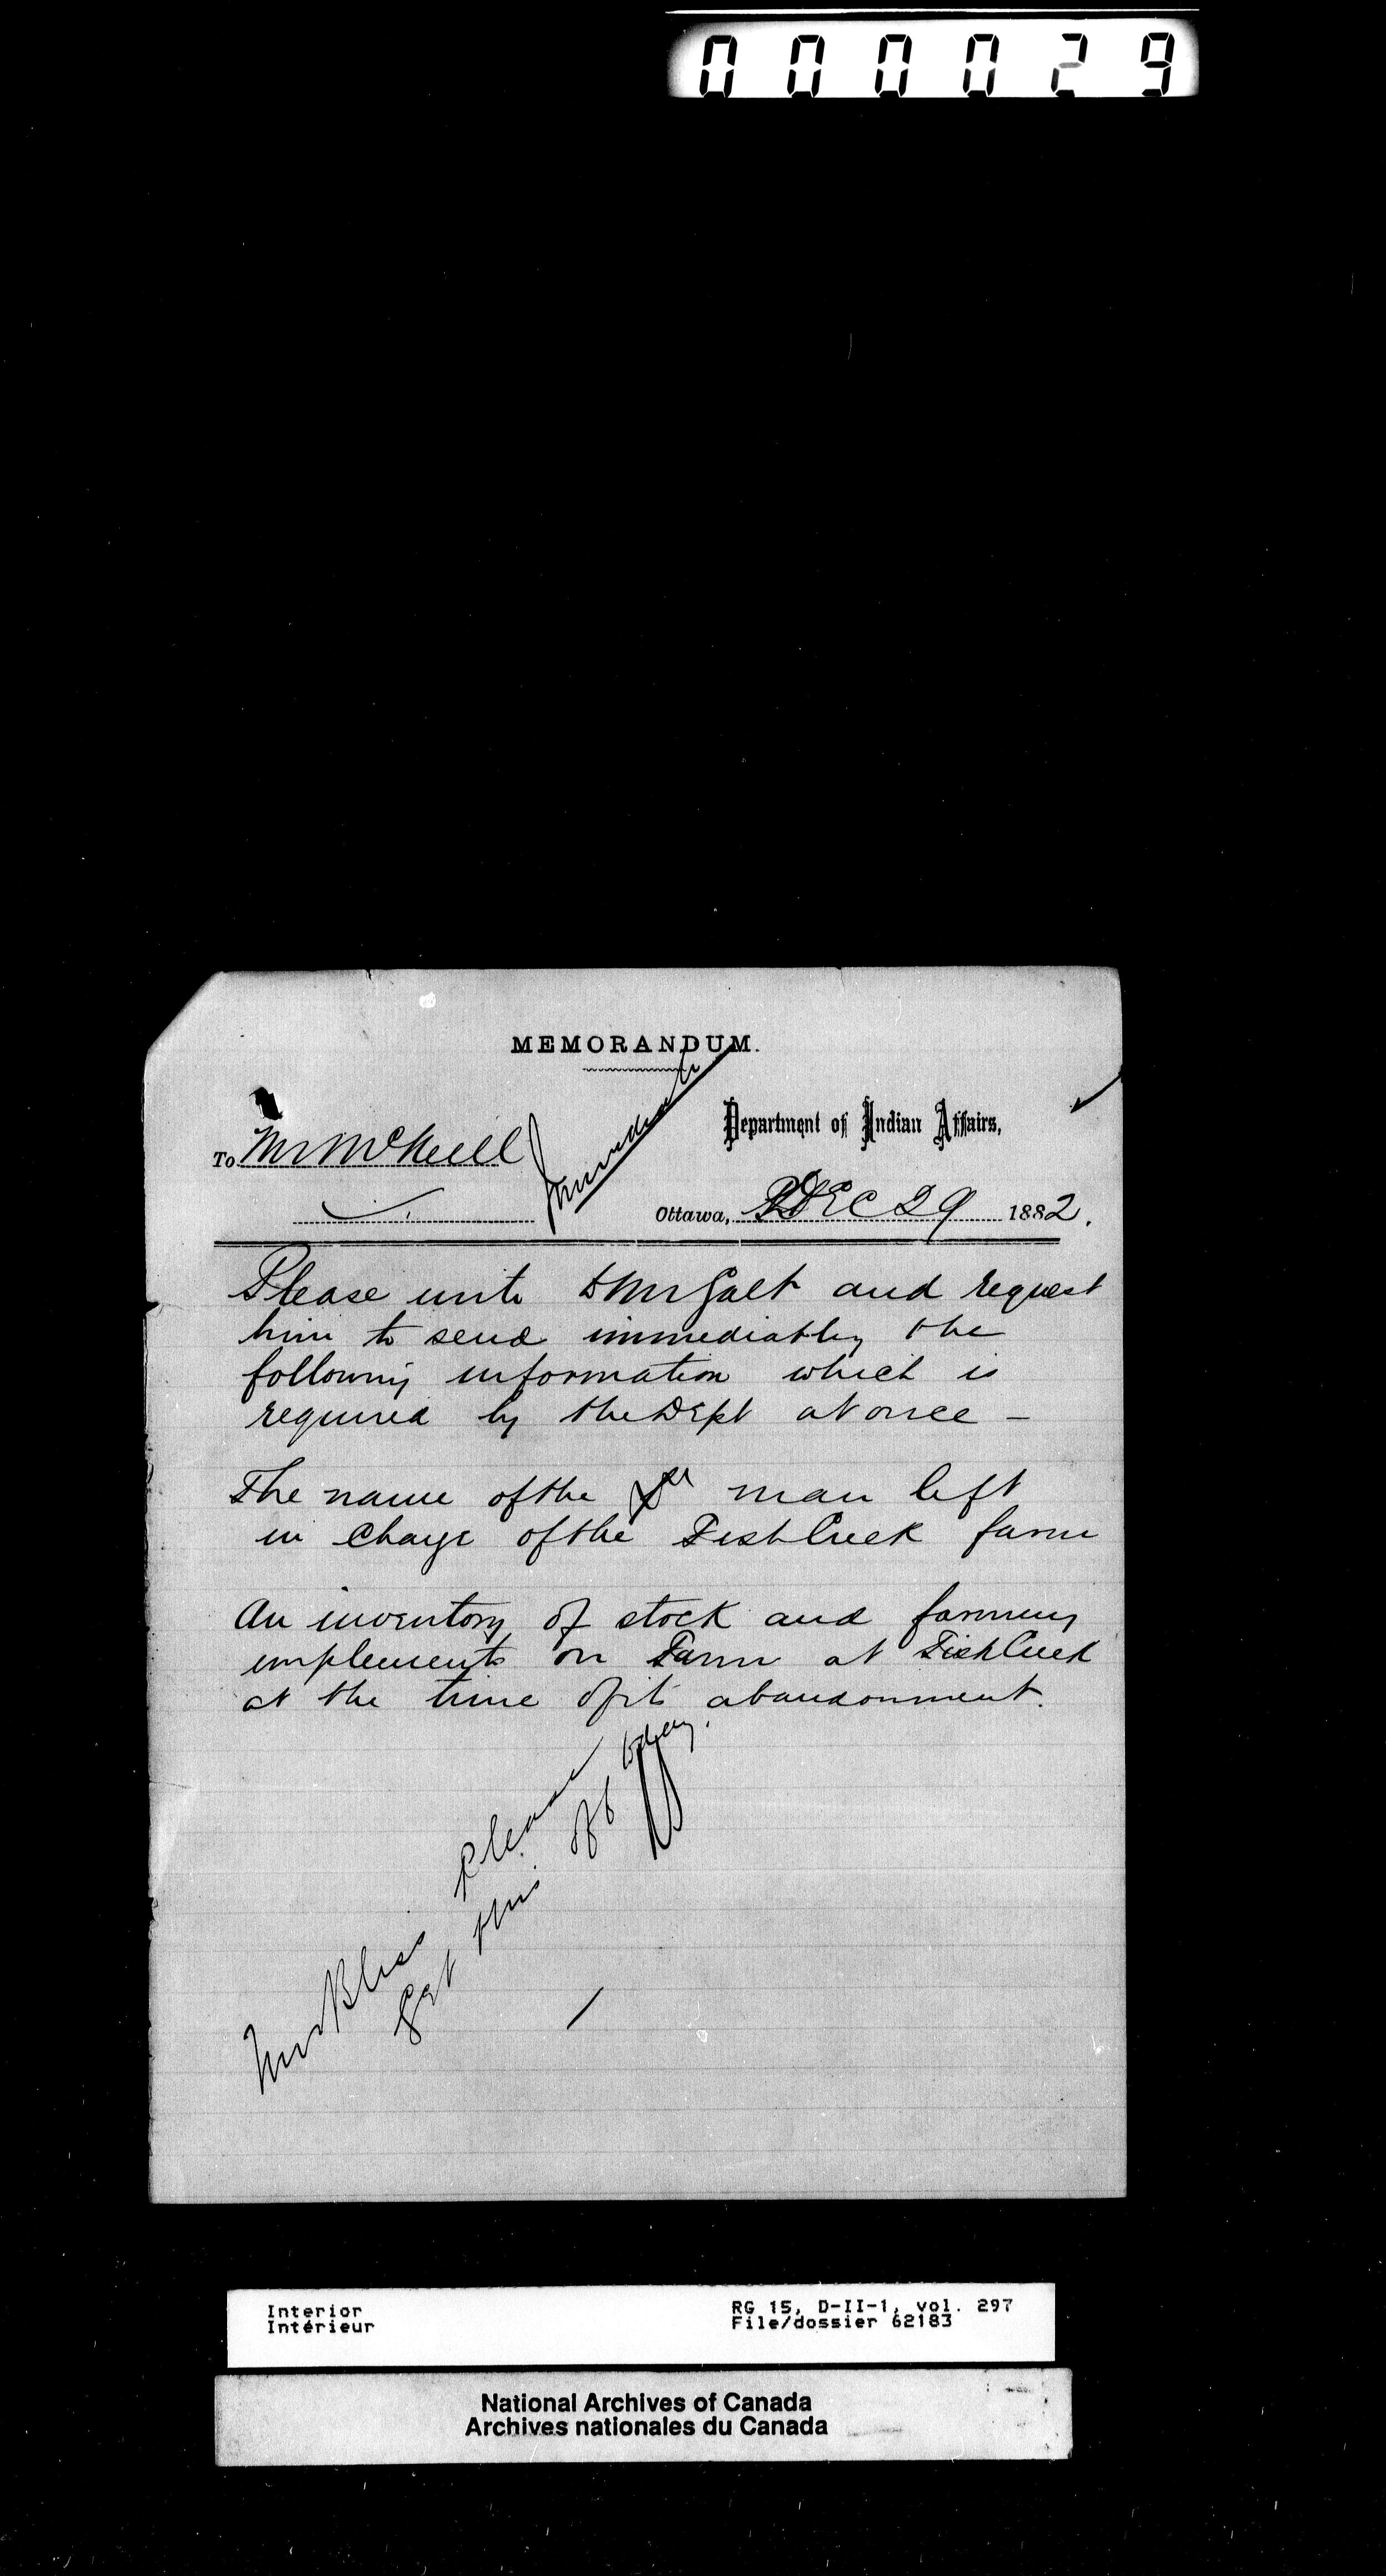 000029
MEMORANDUM.
Immediate
Department of Indian Affairs,
To Mr McNeill
Ottawa, DEC 29 1882.
Please write to Mr Galt and request
him to send immediately the
following information which is
required by the Dept at once —
The name of the man left
in charge of the Fish Creek farm
An inventory of stock and farming
implements on Farm at Fish Creek
at the time of its abandonment.
Mr Bliss please
get this off today.
Interior
Intérieur
RG 15, D-II-1, vol. 297
File/dossier 62183
National Archives of Canada
Archives nationales du Canada